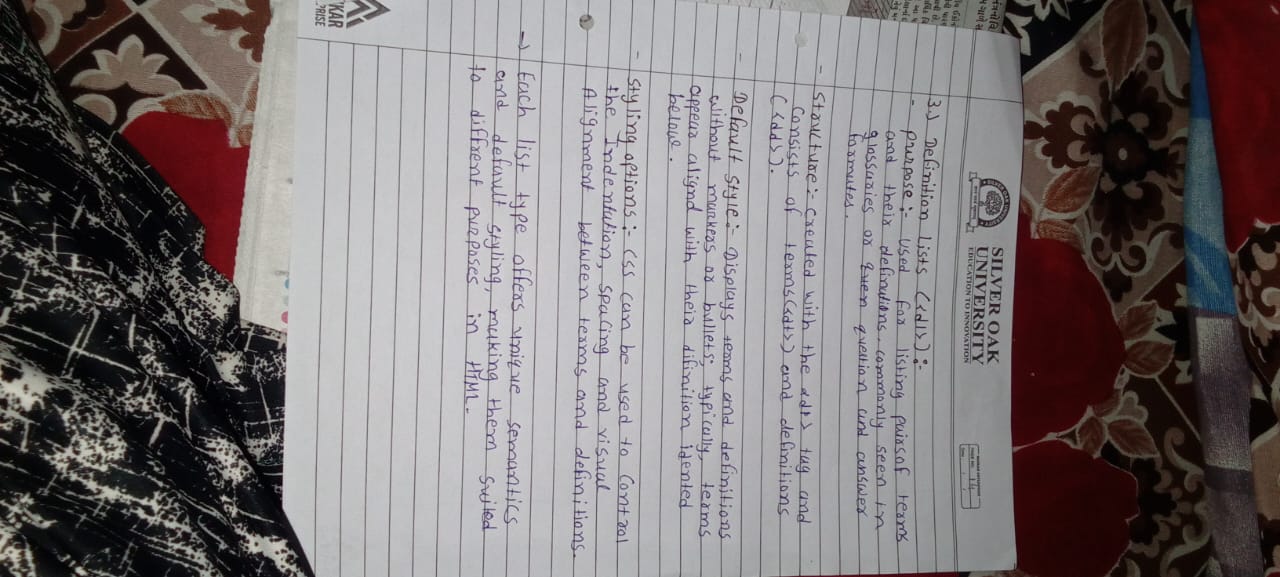 SILVER OAK
UNIVERSITY
EDUCATION TO INNOVATION
3.) Definition lists (<dl>) :-
- purpose :- used for listing pairs of terms
and their definitions, commonly seen in
glossaries or even quetion and answer
formates.
- Structure :- Created with the <dt> tag and
consists of terms(<dt>) and definitions
(<dd>).
- Default Style :- Displays terms and definitions
without markers or bullets, typically, terms
appear aligend with their difinition idented
below.
- Styling options :- CSS can be used to control
the Indentution, spacing and visual
Alignment between terms and definitions.
→ Each list type offers unique semantics
and default styling, making them suited
to diffrent purposes in HTML.
KAR
PRISE